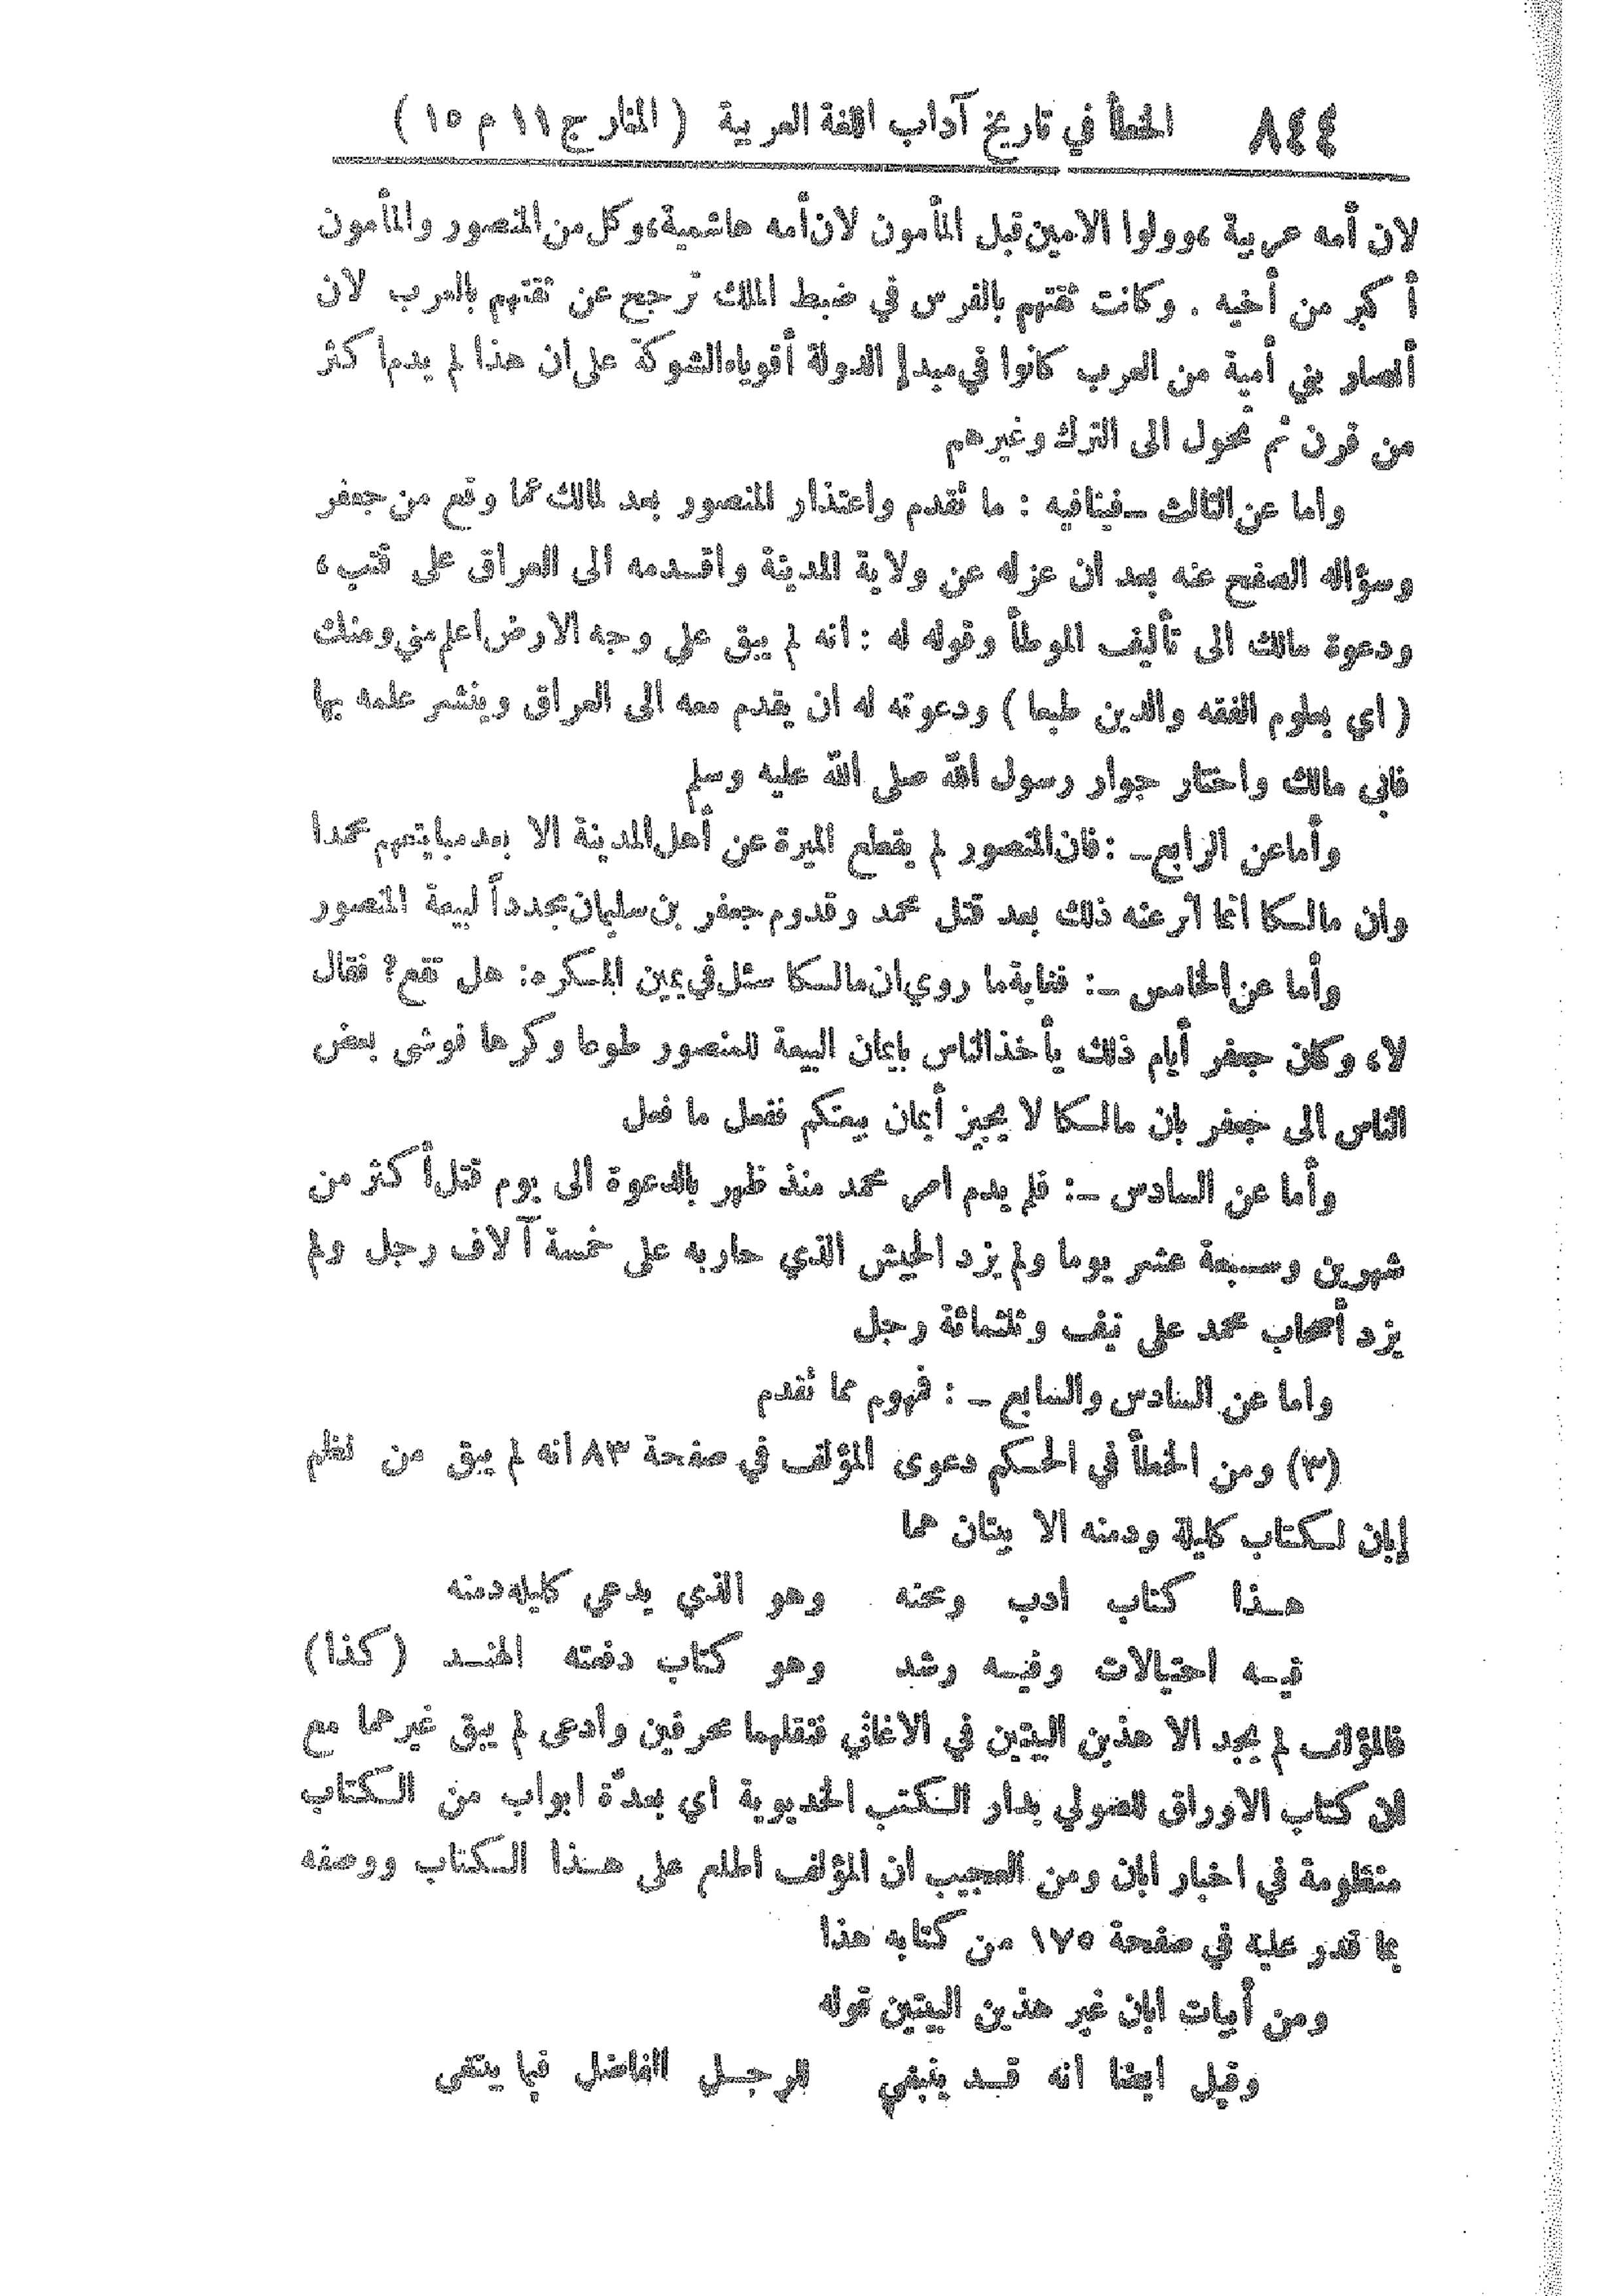 ٨٤٤ الخطأ في تاريخ آداب اللغة العربية ( المنار ج ١١ م ١٥ )
لان أمه عربية ، وولوا الامين قبل المأمون لان أمه هاشمية ، وكل من المنصور والمأمون
أكبر من أخيه . وكانت ثقتهم بالفرس في ضبط الملك ترجح عن ثقتهم بالعرب لان
أنصار بني أمية من العرب كانوا في مبدإ الدولة أقوياء الشوكة على ان هذا لم يدم اكثر
من قرن ثم تحول الى الترك وغيرهم
واما عن الثالث – فينافيه : ما تقدم واعتذار المنصور بعد لمالك عما وقع من جعفر
وسؤاله الصفح عنه بعد ان عزله عن ولاية المدينة واقدمه الى العراق على قتب ،
ودعوة مالك الى تأليف الموطأ وقوله له : انه لم يبق على وجه الارض اعلم مني ومنك
( اي بعلوم الفقه والدين طبعا ) ودعوته له ان يقدم معه الى العراق وينشر علمه بها
فابى مالك واختار جوار رسول الله صلى الله عليه وسلم
وأما عن الرابع – : فان المنصور لم يقطع الميرة عن أهل المدينة الا بعد مبايعتهم محمدا
وان مالكا انما أثر عنه ذلك بعد قتل محمد وقدوم جعفر بن سليمان مجدداً لبيعة المنصور
وأما عن الخامس – : فغاية ما روي ان مالكا سئل في يمين المكره : هل تقع ? فقال
لا ، وكان جعفر أيام ذلك يأخذ الناس بايمان البيعة للمنصور طوعا وكرها فوشى بعض
الناس الى جعفر بان مالكا لا يجيز أيمان بيعتكم ففعل ما فعل
وأما عن السادس – : فلم يدم امر محمد منذ ظهر بالدعوة الى يوم قتل أكثر من
شهرين وسبعة عشر يوما ولم يزد الجيش الذي حاربه على خمسة آلاف رجل ولم
يزد أصحاب محمد على نيف وثلثمائة رجل
واما عن السادس والسابع – : فهوم مما تقدم
(٣) ومن الخطأ في الحكم دعوى المؤلف في صفحة ٨٣ انه لم يبق من نظم
إبان لكتاب كليلة ودمنه الا بيتان هما
هذا كتاب ادب ومحنه وهو الذي يدعى كليله دمنه
فيه احتيالات وفيه رشد وهو كتاب دفته الهند ( كذا )
فالمؤلف لم يجد الا هذين البيتين في الاغاني فنقلهما محرفين وادعى لم يبق غيرهما مع
ان كتاب الاوراق للصولي بدار الكتب الخديوية اي بعدّة ابواب من الكتاب
منظومة في اخبار ابان ومن العجيب ان المؤلف اطلع على هذا الكتاب ووصفه
بما قدر عليه في صفحة ١٧٥ من كتابه هذا
ومن أبيات ابان غير هذين البيتين قوله
وقيل ايضا انه قد ينبغي للرجل الفاضل فيما يبتغي